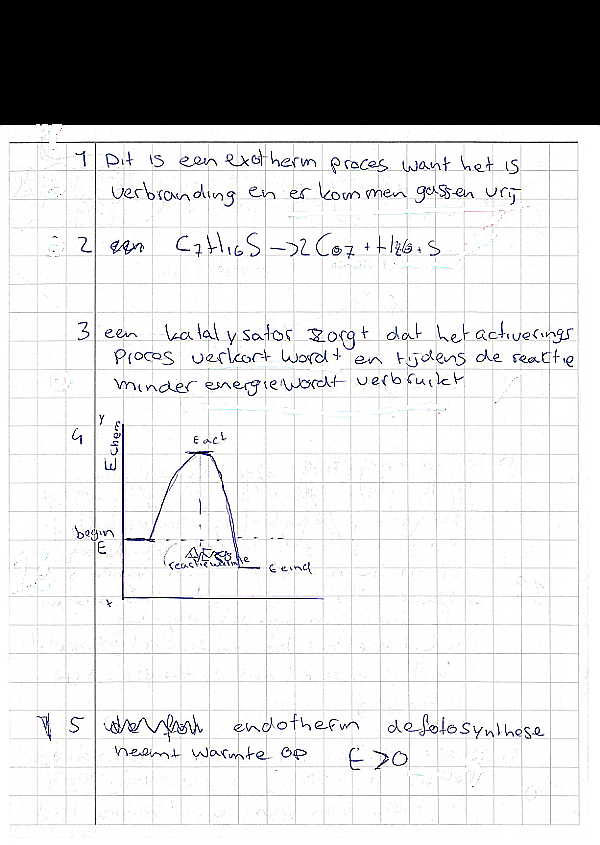 1 Dit is een exotherm proces want het is
verbranding en er kommen gassen vrij
2 C7H16S -> 2
3 een katalysator zorgt dat het activerings
proces verkort wordt en tijdens de reactie
minder energie wordt verbruikt
4
y
E chem
E act
begin
E
reactiewarmte
E eind
x
5 endotherm de fotosynthese
neemt warmte op E>0